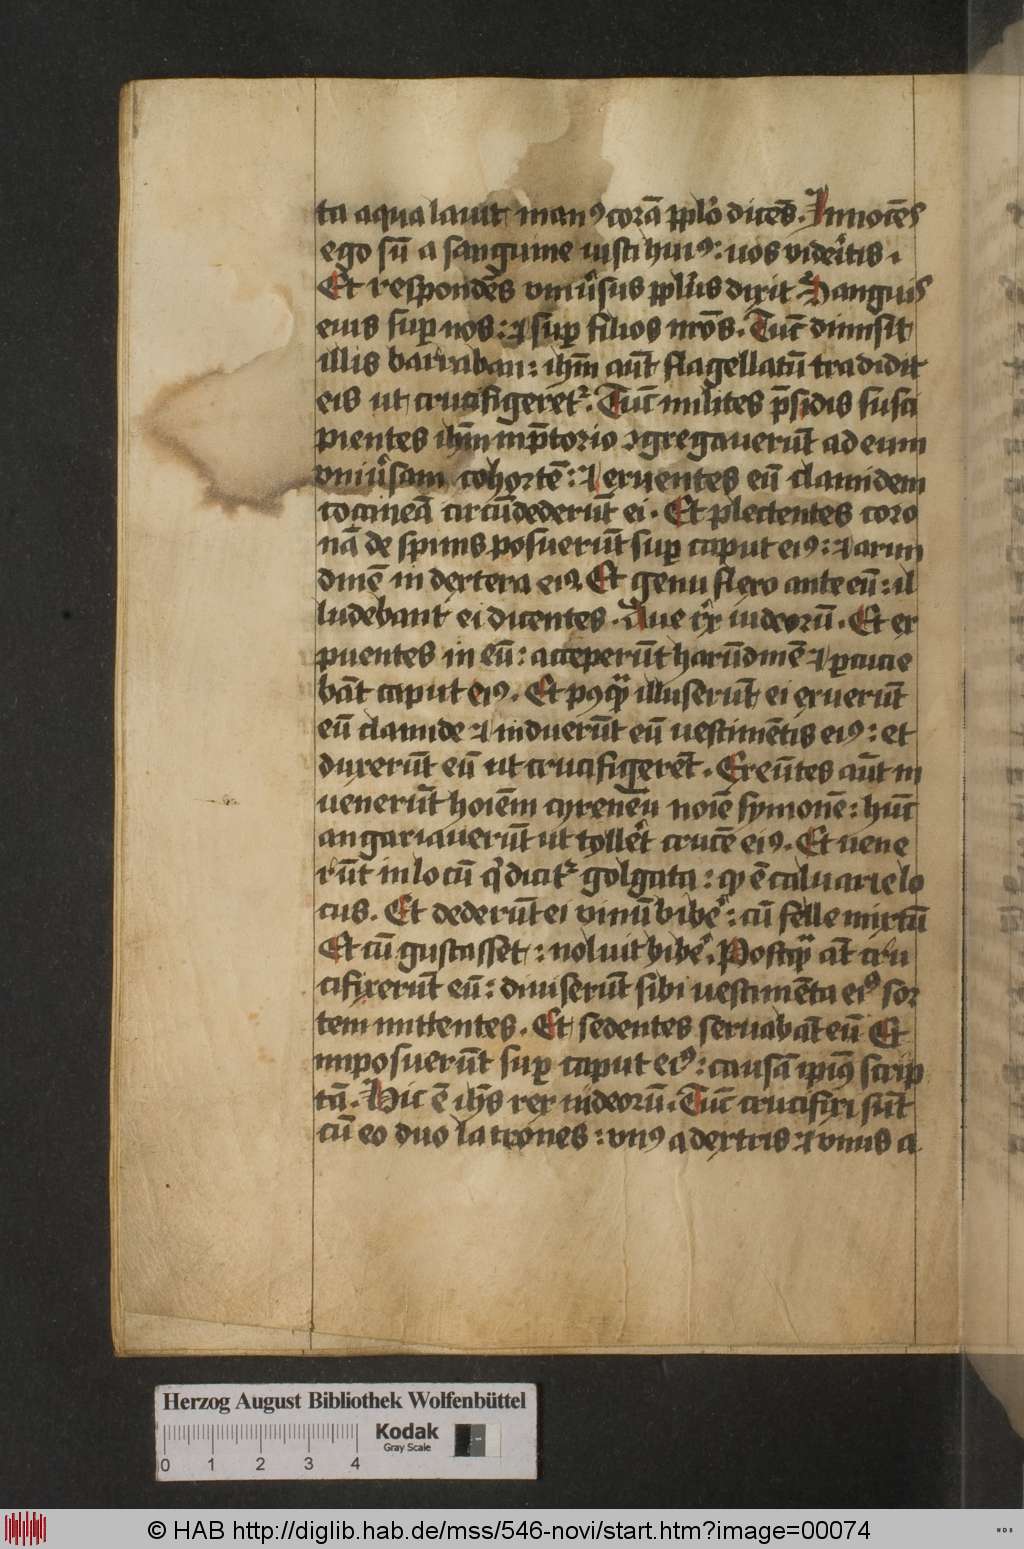 ta aqua lauit man⁹ corā pplo dicēs. Innocēs
ego sū a sanguine iusti hui⁹: uos videritis.
Et respondēs vniūsus pplus dixit Sanguis
eius sup nos: ⁊ sup filios nrōs. Tūc dimisit
illis barraban: ihm aūt flagellatū tradidit
eis ut crucifigeret'. Tūc milites p̄sidis susci
pientes ihm in p̄torio ꝯgregauerūt ad eum
vniūsam cohortē: ⁊ exuentes eū clamidem
coccineā circūdederūt ei. Et plectentes coro
nā de spinis posuerūt sup caput ei⁹: ⁊ arun
dinē in dextera ei⁹. Et genu flexo ante eū: il
ludebant ei dicentes. Aue rx iudeorū. Et ex
puentes in eū: acceperūt harūdinē ⁊ pcucie
bāt caput ei⁹. Et p⁹qꝫ illuserūt ei exuerūt
eū clamide ⁊ induerūt eū uestimētis ei⁹: et
duxerūt eū ut crucifigerēt. Exeūtes aūt in
uenerūt hoiēm cyrenēū noiē symonē: hūc
angariauerūt ut tollet crucē ei⁹. Et uene
rūt in locū q dicit' golgata: qꝫ ē caluarie lo
cus. Et dederūt ei vinū bibe': cū felle mixtū
Et cū gustasset: noluit bibe'. Postqꝫ āt cru
cifixerūt eū: diuiserūt sibi uestimēta ei⁹ sor
tem mittentes. Et sedentes seruabāt eū Et
imposuerūt sup caput ei⁹: causā ipi⁹ scrip
tā. Hic ē ihs rex iudeorū. Tūc crucifixi sūt
cū eo duo latrones: vn⁹ a dextris ⁊ vnus a
Herzog August Bibliothek Wolfenbüttel
Kodak
Gray Scale
0 1 2 3 4
© HAB http://diglib.hab.de/mss/546-novi/start.htm?image=00074